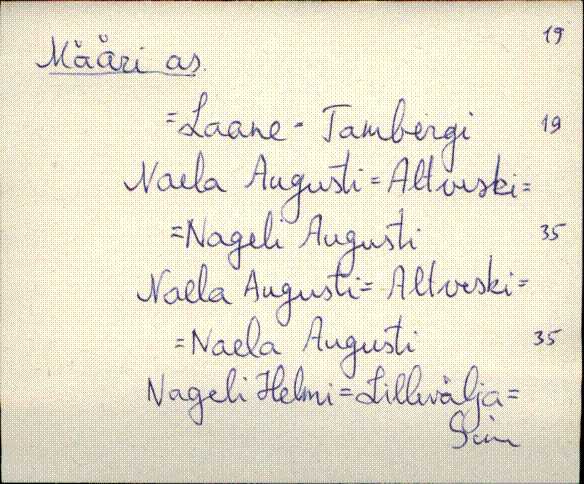 19
Määri as.
=Laane-Tambergi 19
Naela Augusti=Altveski=
=Nageli Augusti 35
Naela Augusti=Altveski=
=Naela Augusti 35
Nageli Helmi=Lillevälja=